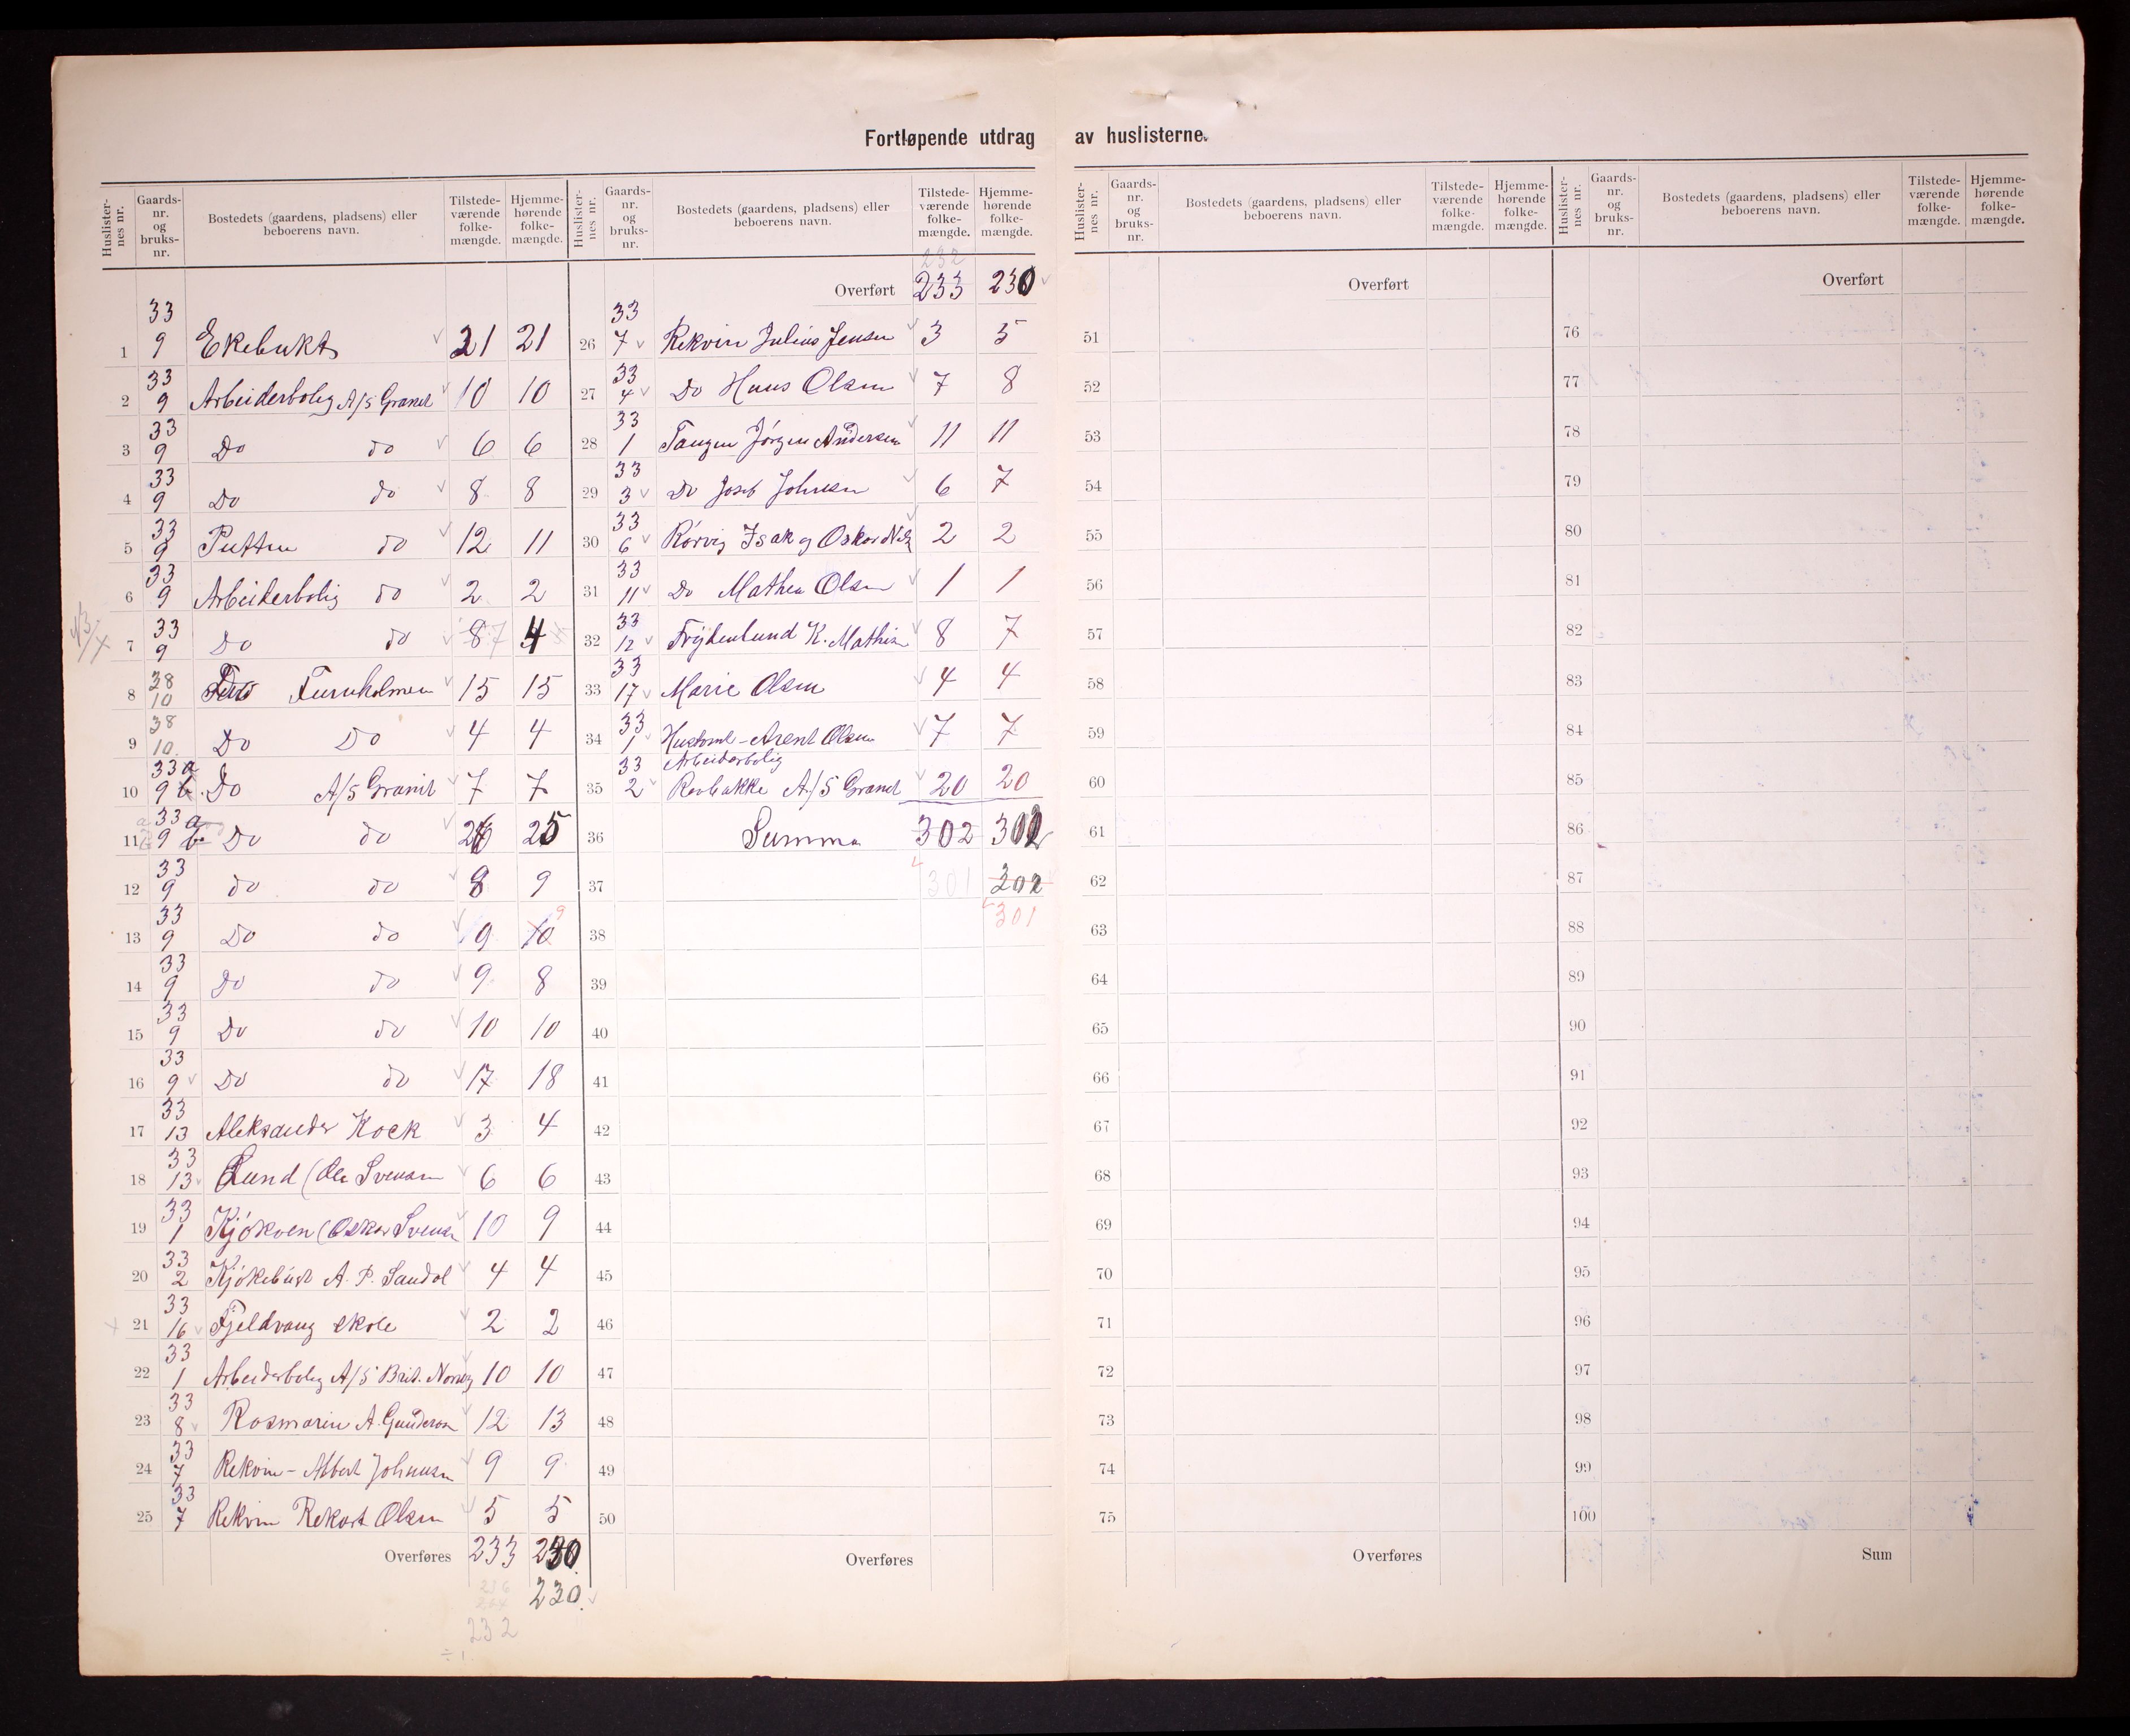 Fortløpende utdrag av huslisterne.
Huslister-nes nr. Gaards-nr. og bruks-nr. Bostedets (gaardens, pladsens) eller beboerens navn. Tilstede-værende folke-mængde. Hjemme-hørende folke-mængde.
1 33 9 Ekebukt 21 21
2 33 9 Arbeiderbolig A/S Granit 10 10
3 33 9 Do do 6 6
4 33 9 Do do 8 8
5 33 9 Putten do 12 11
6 33 9 Arbeiderbolig do 2 2
7 33 9 Do do 8 7 4
8 38 10 Furuholmen 15 15
9 38 10 Do Do 4 4
10 33 a 9 b. Do A/S Granit 7 7
11 33 a 9 b. Do do 26 25
12 33 9 do do 8 9
13 33 9 Do do 9 10 9
14 33 9 Do do 9 8
15 33 9 Do do 10 10
16 33 9 Do do 17 18
17 33 13 Aleksander Kock 3 4
18 33 13 Lund (Ole Svensen 6 6
19 33 1 Kjøkøen (Oskar Svensen 10 9
20 33 2 Kjøkebust A. P. Sandøl 4 4
21 33 16 Fjeldvang skole 2 2
22 33 1 Arbeiderbolig A/S Brit. Norweg 10 10
23 33 8 Rosmarin A. Gunderson 12 13
24 33 7 Rekvin - Albert Johansen 9 9
25 33 7 Rekvin Rekart Olsen 5 5
Overføres 233 230
230
232
÷ 1
Huslister-nes nr. Gaards-nr. og bruks-nr. Bostedets (gaardens, pladsens) eller beboerens navn. Tilstede-værende folke-mængde. Hjemme-hørende folke-mængde.
232
Overført 233 230
26 33 7 Rekvin Julius Jensen 3 5
27 33 4 Do Hans Olsen 7 8
28 33 1 Tangen Jørgen Andersen 11 11
29 33 3 Do Josef Johnsen 6 7
30 33 6 Rørvig Isak og Oskar Nils 2 2
31 33 11 Do Mathea Olsen 1 1
32 33 12 Frydenlund K. Mathis 8 7
33 33 17 Marie Olsen 4 4
34 33 1 Hustomt - Arent Olsen 7 7
35 33 2 Arbeiderbolig Revbakke A/S Granit 20 20
36 Summa 302 302
37 301 302
38 301
39
40
41
42
43
44
45
46
47
48
49
50
Overføres
Huslister-nes nr. Gaards-nr. og bruks-nr. Bostedets (gaardens, pladsens) eller beboerens navn. Tilstede-værende folke-mængde. Hjemme-hørende folke-mængde.
Overført
51
52
53
54
55
56
57
58
59
60
61
62
63
64
65
66
67
68
69
70
71
72
73
74
75
Overføres
Huslister-nes nr. Gaards-nr. og bruks-nr. Bostedets (gaardens, pladsens) eller beboerens navn. Tilstede-værende folke-mængde. Hjemme-hørende folke-mængde.
Overført
76
77
78
79
80
81
82
83
84
85
86
87
88
89
90
91
92
93
94
95
96
97
98
99
100
Sum